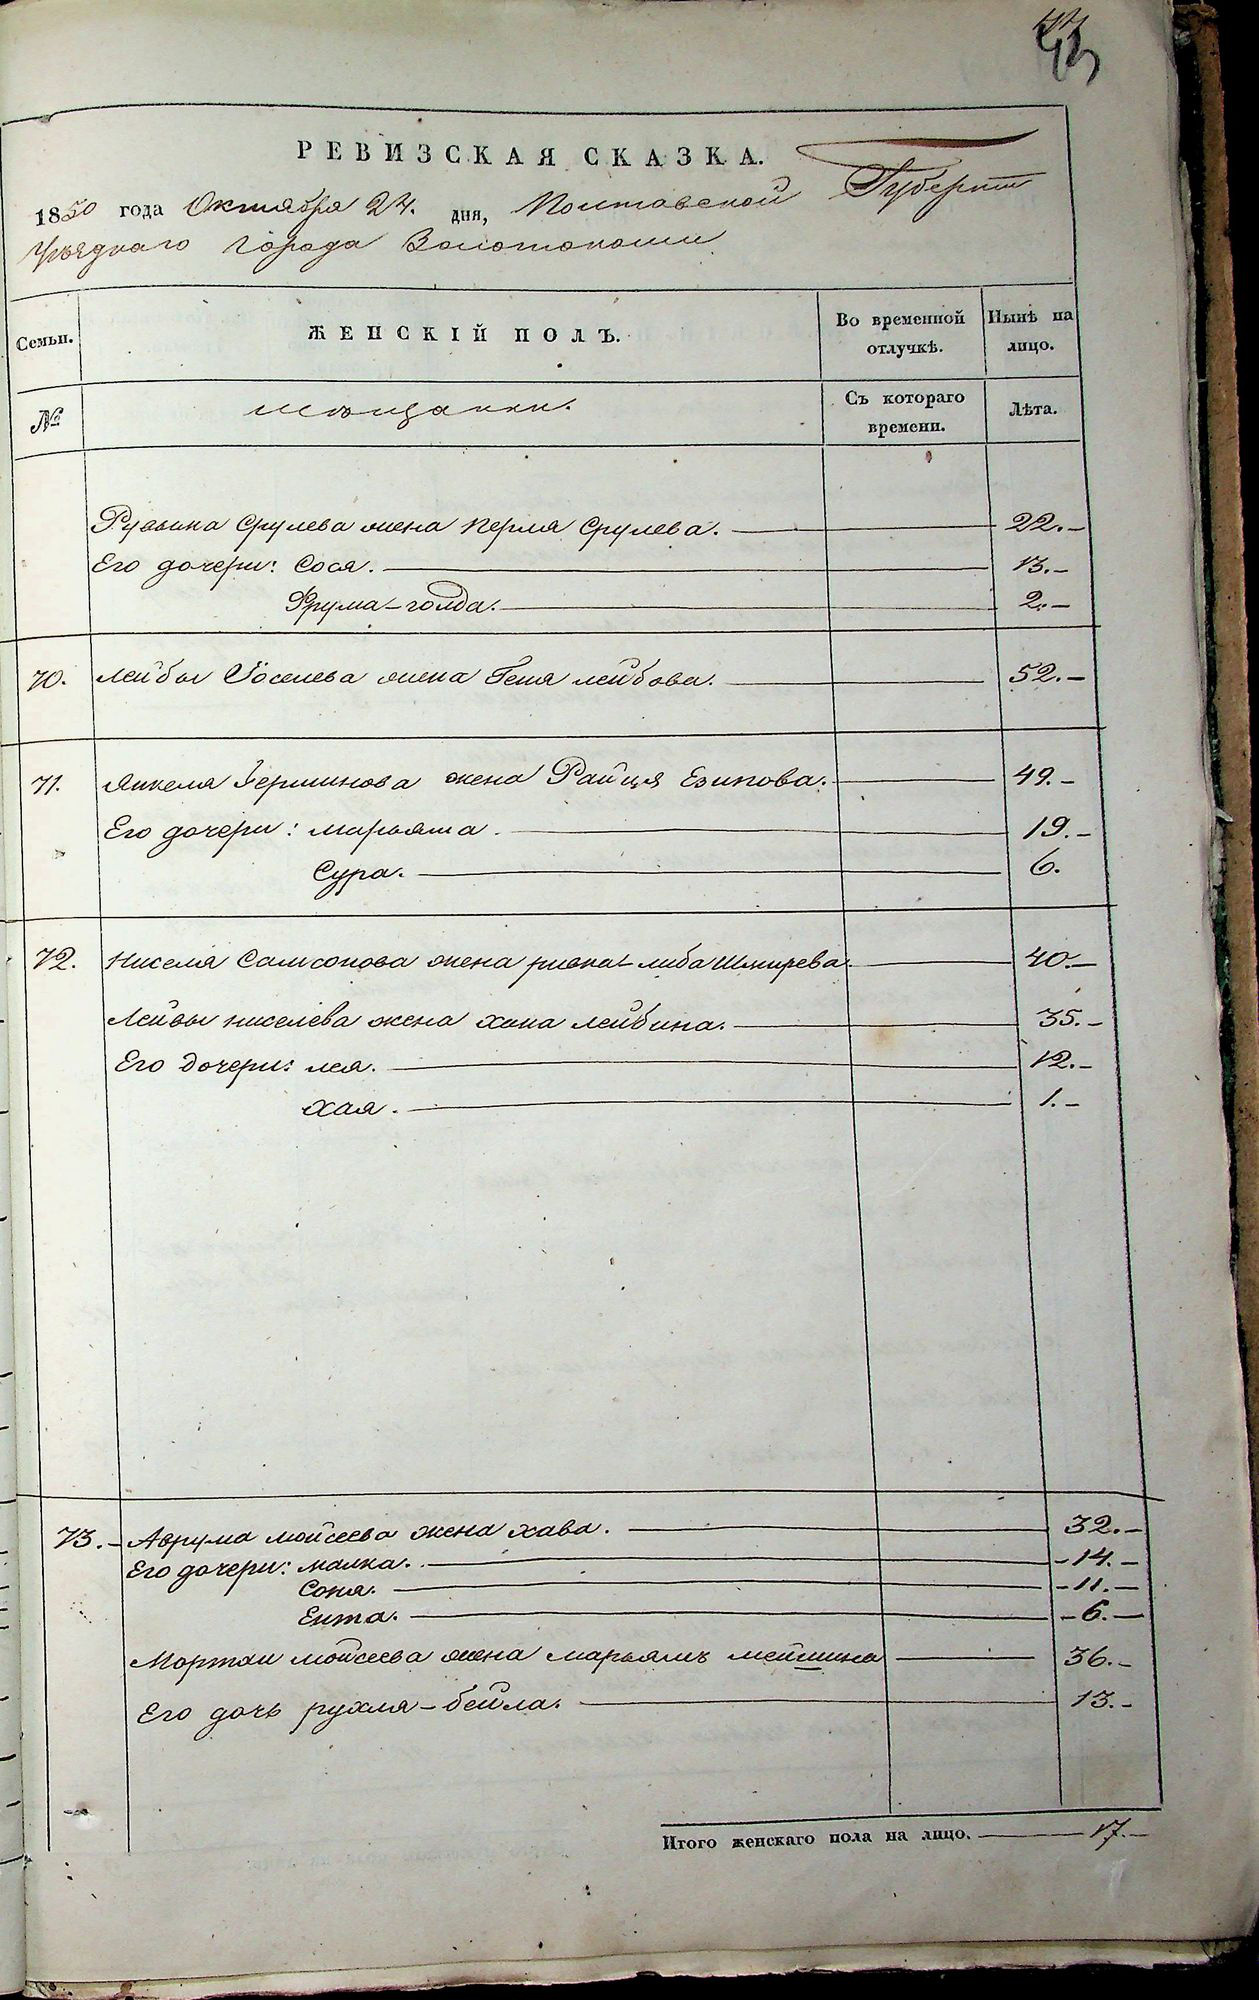 43
РЕВИЗСКАЯ СКАЗКА.
1850 года Октября 24. дня, Полтавской Губернии
Уѣзднаго города Золотоноши
Семьи. ЖЕНСКІЙ ПОЛЪ. Во временной отлучкѣ. Нынѣ на лицо.
№ мѣщанки. Съ котораго времени. Лѣта.
Рувина Срулева жена Перля Срулева. 22.
Его дочери: Сося. 13.
Фрума-голда. 2.
70. Лейбы Іоселева жена Геня лейбова. 52.
71. Янкеля жена Райця Езипова. 49.
Его дочери: марьяша. 19.
Сура. 6.
72. Киселя Самсонова жена ривка-либа Шмирева. 40.
Лейбы киселева жена хана лейбина. 35.
Его дочери: лея. 12.
хая. 1.
73. Аврума мойсеева жена хава. 32.
Его дочери: малка. 14.
Соня. 11.
Ента. 6.
Мортхи мойсеева жена марьямъ 36.
Его дочь рухля-бейла. 13.
Итого женскаго пола на лицо. 17.